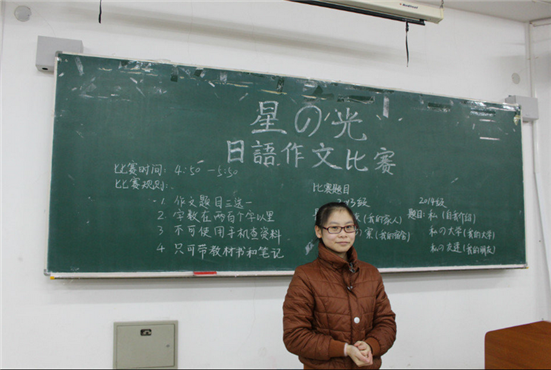 星の光
日語作文比赛
比赛时间: 4:50 -5:50
比赛规则:
1 作文题目三选一
2 字数在两百个字以里
3 不可使用手机查资料
4 只可带教材书和笔记
比赛题目
13级
(我的家人)
室(我的宿舍)
2014级
题目:私(自我介绍)
私の大学(我的大学)
私の友達(我的朋友)